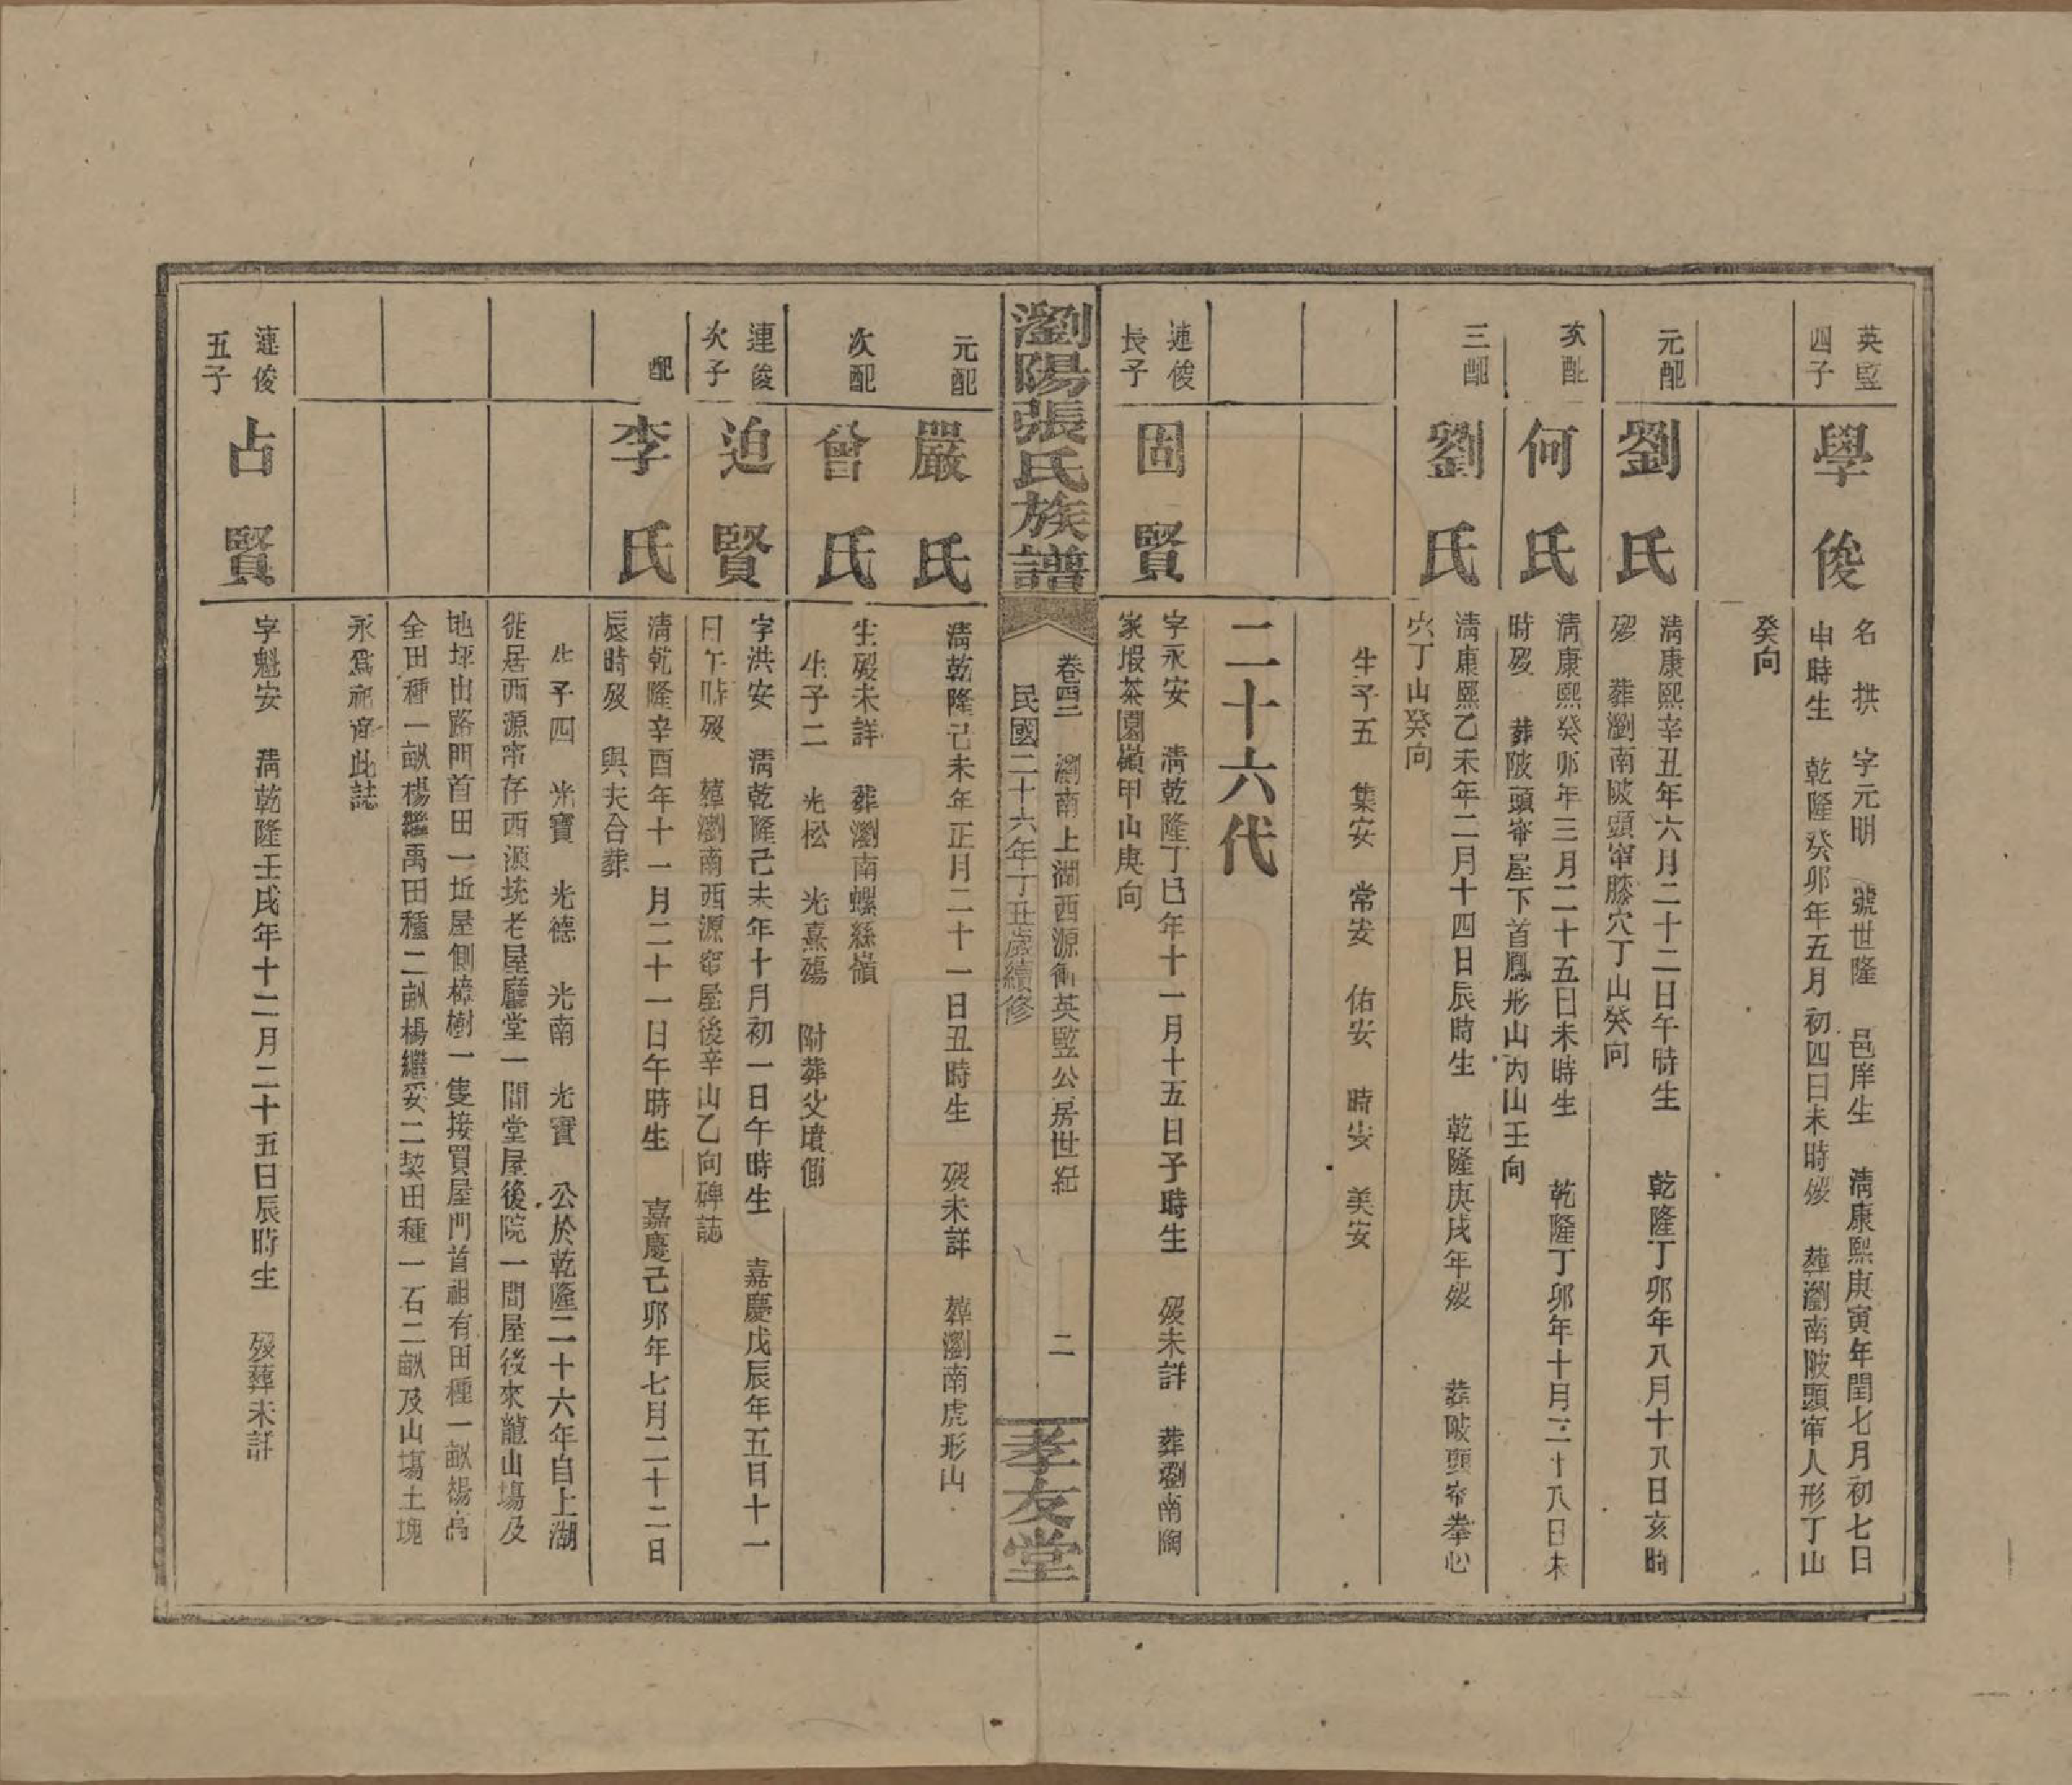 英竪
四子
學俊
名拱 字元明 號世隆 邑庠生 淸康熙庚寅年閏七月初七日
申時生 乾隆癸卯年五月初四日未時歿 葬瀏南陂頭窜人形丁山
癸向
元配
劉氏
淸康熙辛丑年六月二十二日午時生 乾隆丁卯年八月十八日亥時
歿 葬瀏南陂頭窜膝穴丁山癸向
次配
何氏
淸康熙癸卯年三月二十五日未時生 乾隆丁卯年十月二十八日未
時歿 葬陂頭窜屋下首鳳形山丙山壬向
三配
劉氏
淸康熙乙未年二月十四日辰時生 乾隆庚戌年歿 葬陂頭窜拳心
穴丁山癸向
生子五 集安 常安 佑安 時安 美安
二十六代
連俊
長子
固賢
字永安 淸乾隆丁巳年十一月十五日子時生 歿未詳 葬瀏南陶
家塅茶園嶺甲山庚向
瀏陽張氏族譜
卷四二 瀏南上湖西源衕英竪公房世紀 二
民國二十六年丁丑歲續修
孝友堂
元配
嚴氏
淸乾隆己未年正月二十一日丑時生 歿未詳 葬瀏南虎形山
次配
曾氏
生歿未詳 葬瀏南螺絲嶺
生子二 光松 光熹殤 附葬父墳側
連俊
次子
迫賢
字洪安 淸乾隆己未年十月初一日午時生 嘉慶戊辰年五日十一
日午時歿 葬瀏南西源窜屋後辛山乙向碑誌
配
李氏
淸乾隆辛酉年十一月二十一日午時生 嘉慶己卯年七月二十二日
辰時歿 與夫合葬
生子四 光寶 光德 光南 光實 公於乾隆二十六年自上湖
徙居西源窜存西源垅老屋廳堂一間堂屋後院一間屋後來龍山塲及
地坪出路門首田一坵屋側樟樹一隻接買屋門首祖有田種一畝楊高
全田種一畝楊繼禹田種二畝楊繼妥二契田種一石二畝及山塲土塊
永爲祀產此誌
連俊
五子
占賢
字魁安 淸乾隆壬戌年十二月二十五日辰時生 歿葬未詳